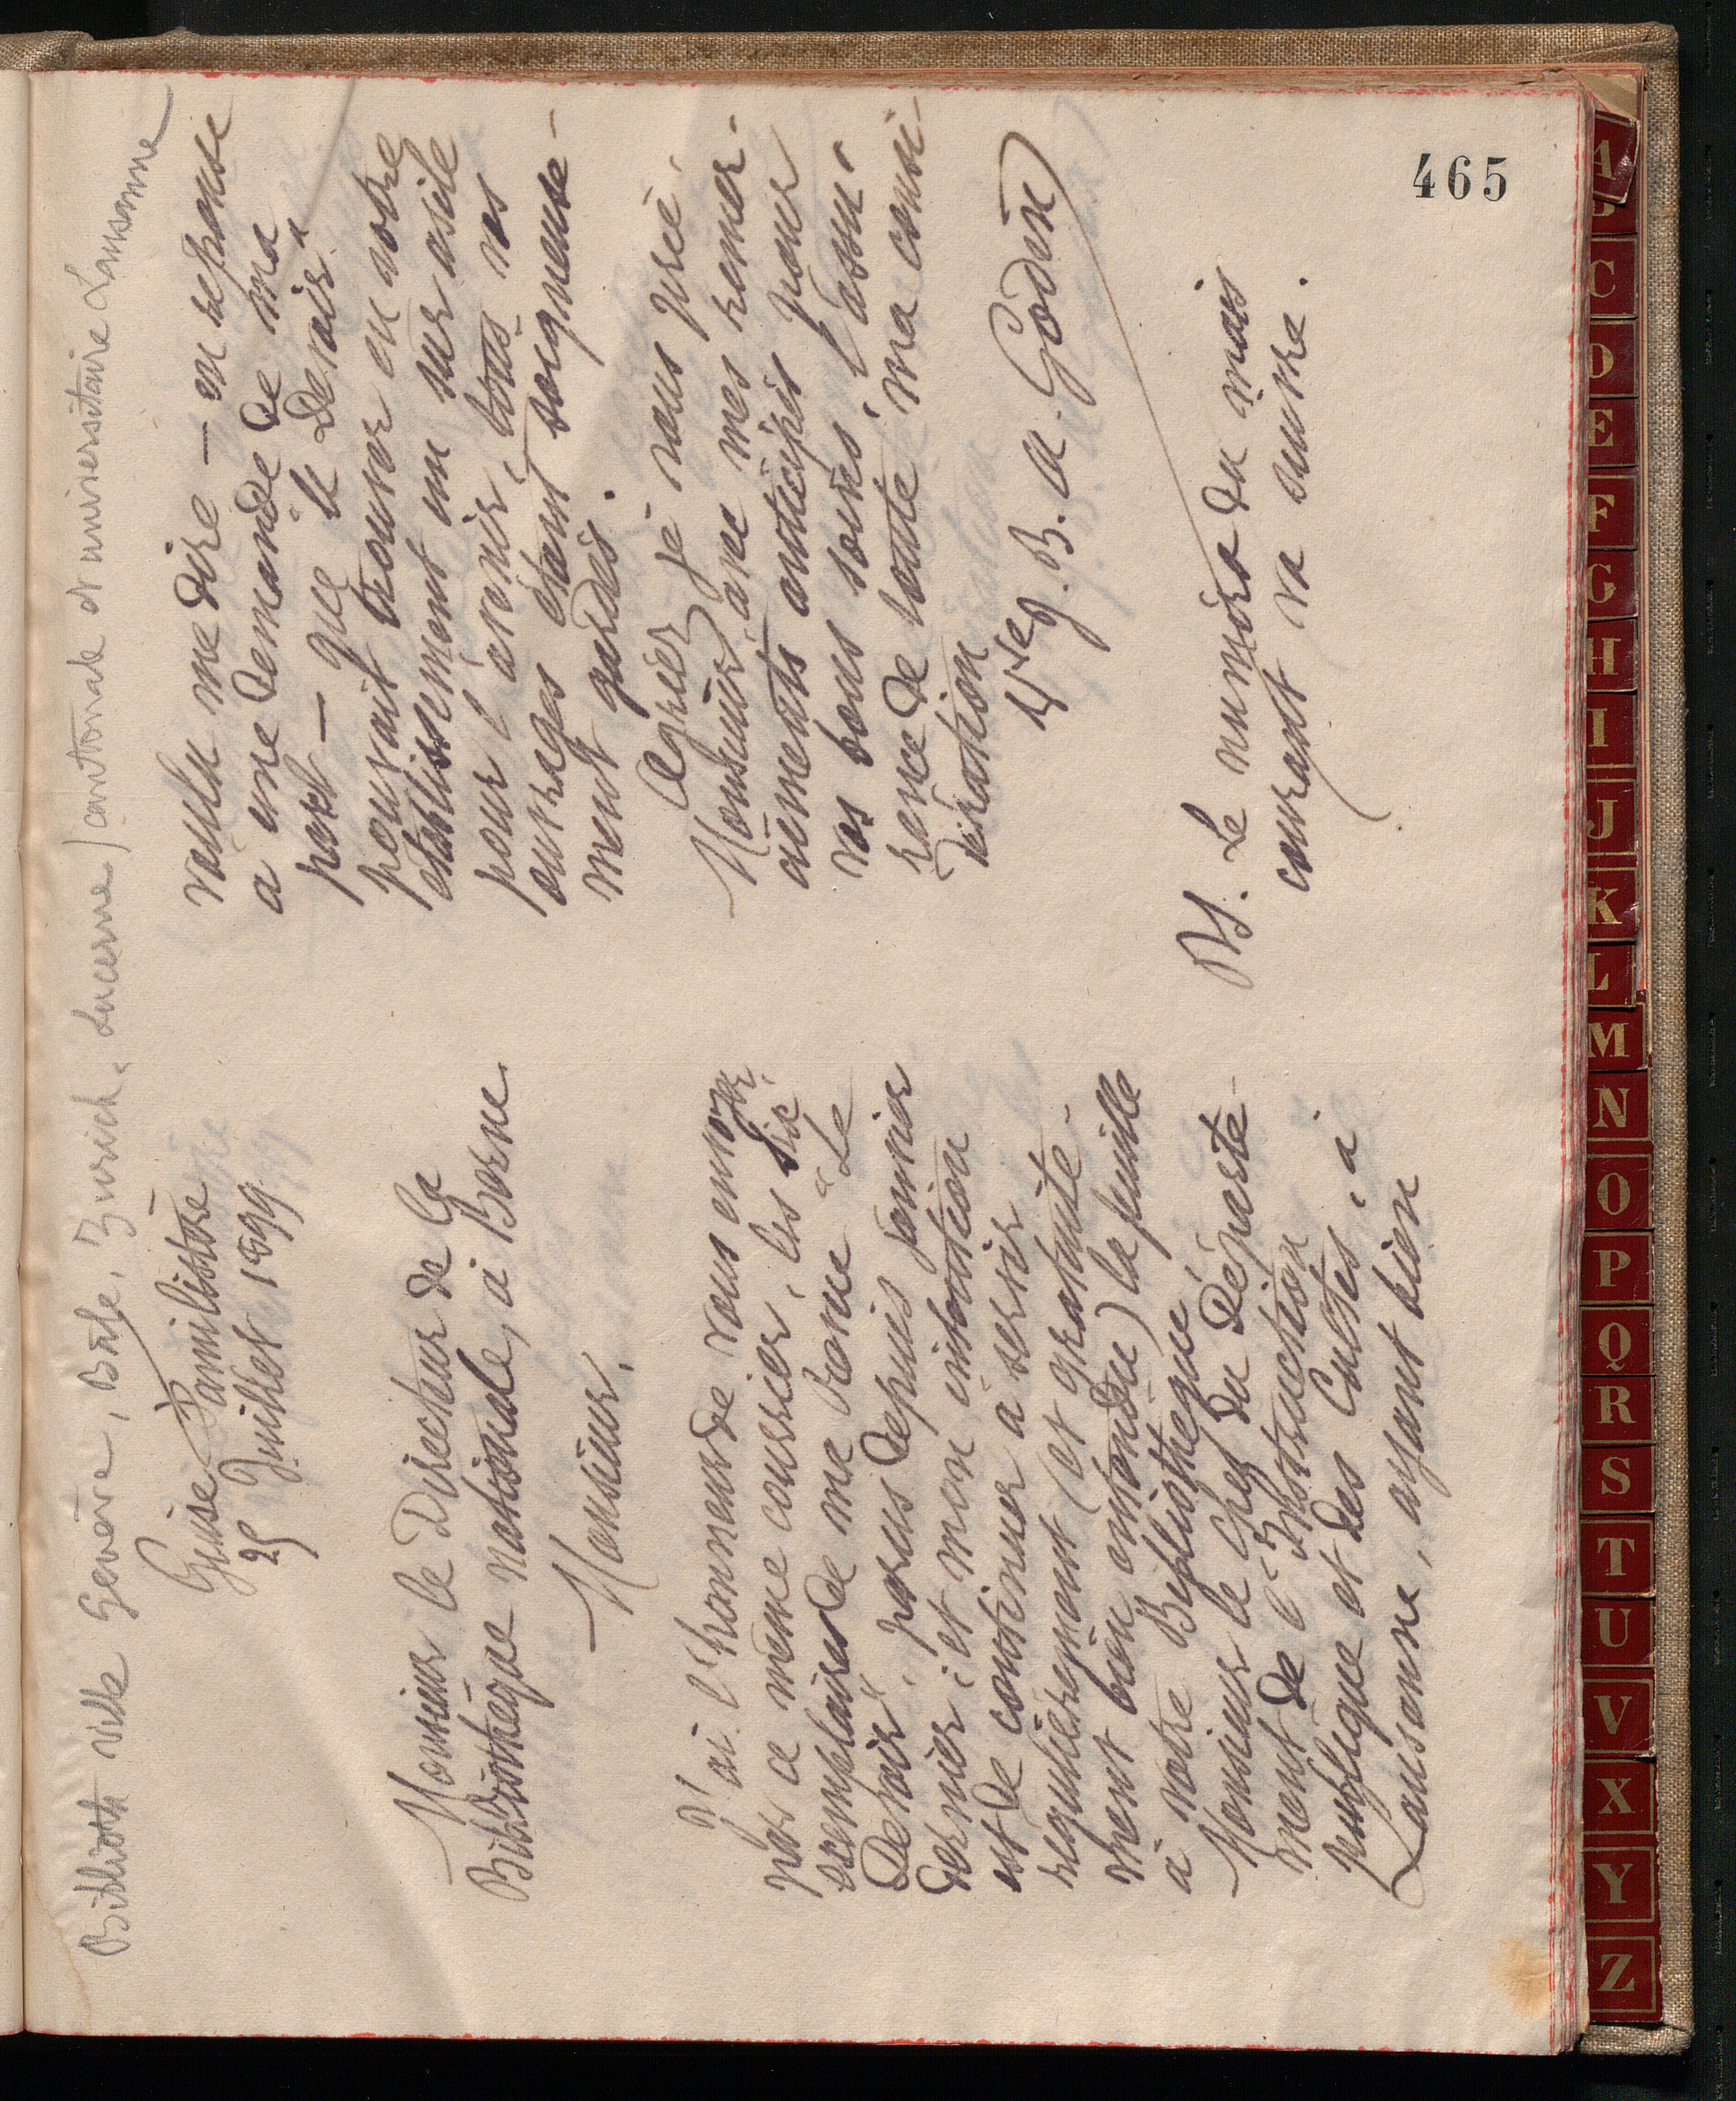 Biblioth ville Genève, Bâle, Zurich, Lucerne, cantonale et universitaire Lausanne
Guise Familistère
25 Juillet 1899
Monsieur le Directeur de la
Bibliothèque nationale, à Berne
Monsieur,
J'ai l'honneur de vous envoyer,
par ce même courrier, les six
exemplaires de ma revue "Le
Devoir", parus depuis janvier
dernier; et mon intention
est de continuer à servir
regulièrement (et gratuite-
ment bien entendu) la feuille
à votre Bibliothèque,
Monsieur le Chef du Départe-
ment de l'Instruction
publique et des Cultes, à
Lausanne, ayant bien
voulu me dire — en réponse
à une demande de ma
part — que "le Devoir"
pouvait trouver en votre
établissement un sur asile
pour l'avenir, tous vos
ouvrages étant soigneuse-
ment gardés.
Agréer je vous prie,
Monsieur, avec mes remer-
ciements anticipés pour
vos bons soins, l'assu-
rance de toute ma consi-
dération
Vve J. B. A. Godin
PS. Le numéro du mois
courant va suivre.
465
A
C
D
E
F
G
H
I
J
K
L
M
N
O
P
Q
R
S
T
U
V
X
Y
Z